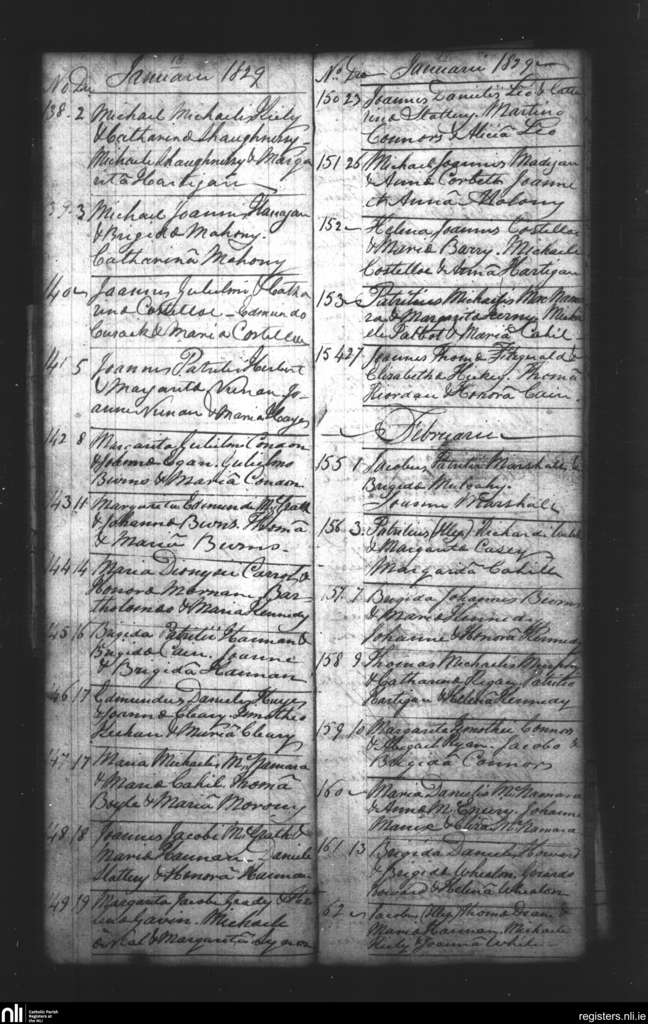 No Die Januarii 1829
138 2 Michael Michaelis Kiely
& Catharinæ Shaughnessy
Michaele Shaughnessy & Marga
ritâ Hartigan
39 3 Michael Joannis Flanagan
& Brigidæ Mahony.
Catharinâ Mahony
40 Joannes Gulielmi & Catha
rinæ Costelloe - Edmundo
Cusack & Maria Costelloe
141 5 Joannes Patritii Herbert
& Margaritæ Nunan Jo-
anne Nunan & Maria Hayes
142 8 Margarita Gulielmi Condon
& Joannæ Egan. Gulielmo
Burns & Mariâ Condon
43 11 Margarita Edmundi McGrath
& Johannæ Burns. Thomâ
& Mariâ Burns.
44 14 Maria Dionysii &
Honoræ Bar-
tholomeo & Maria Kennedy
45 16 Brigida Patritii Hannan &
Brigidæ Joanne
& Brigidâ Hannan
46 17 Edmundus Danielis Hayes
& Joannæ Cleary Timotheo
& Mariâ Cleary
47 17 Maria Michaelis McNamara
& Mariæ Cahil. Thomâ
Boyle & Mariâ Morony
48 18 Joannes Jacobi McGrath &
Mariæ Hannan. Daniele
Slattery & Honorâ Hannan
49 19 Margarita Jacobi Grady &
Gavin. Michaele
& Margaritâ
No Die Januarii 1829
150 23 Joannes Danielis Leo & Catha
rinæ Slattery. Martino
Connors & Aliciâ Leo
151 26 Michael Joannis Madigan
& Annæ Corbett. Joanne
& Annâ Molony
152 Helena Joannis Costelloe
& Mariæ Barry. Michaele
Costelloe & Anna Hartigan
153 Patritius Michaelis McNama
ra & Margaritæ Micha
ele Talbot & Mariâ Cahil
154 27 Joannes Thomæ Fitzgerald &
Elizabethæ Hickey. Thomâ
Riordan & Honorâ
Februarii
155 1 Jacobus Patritii Marshall &
Brigidæ Mulcahy.
Joanne Marshall
156 3 Patritius (Illeg) Richardi
& Margaritæ Casey
Margaritâ Cahill
157 7 Brigida Johannis Burns
& Mariæ Kennedy
Johanne & Honorâ Kennedy
158 9 Thomas Michaelis Murphy
& Catharinæ Ryan Patritio
Hartigan & Helenâ Kennedy
159 10 Margarita Timothei Connors
& Abigail Ryan. Jacobo &
Brigidâ Connors
160 Maria Danielis McNamara
& Annæ McEniry. Johanne
& Elizâ McNamara
161 13 Brigida Danielis Howard
& Brigidæ Whealon. Gerardo
Howard & Helenâ Whealon
62 Jacobus (Illeg) Thomæ Deane &
Mariæ Hannan. Michaele
Kiely & Joannâ White
nli
Catholic Parish
Registers at
the NLI
registers.nli.ie